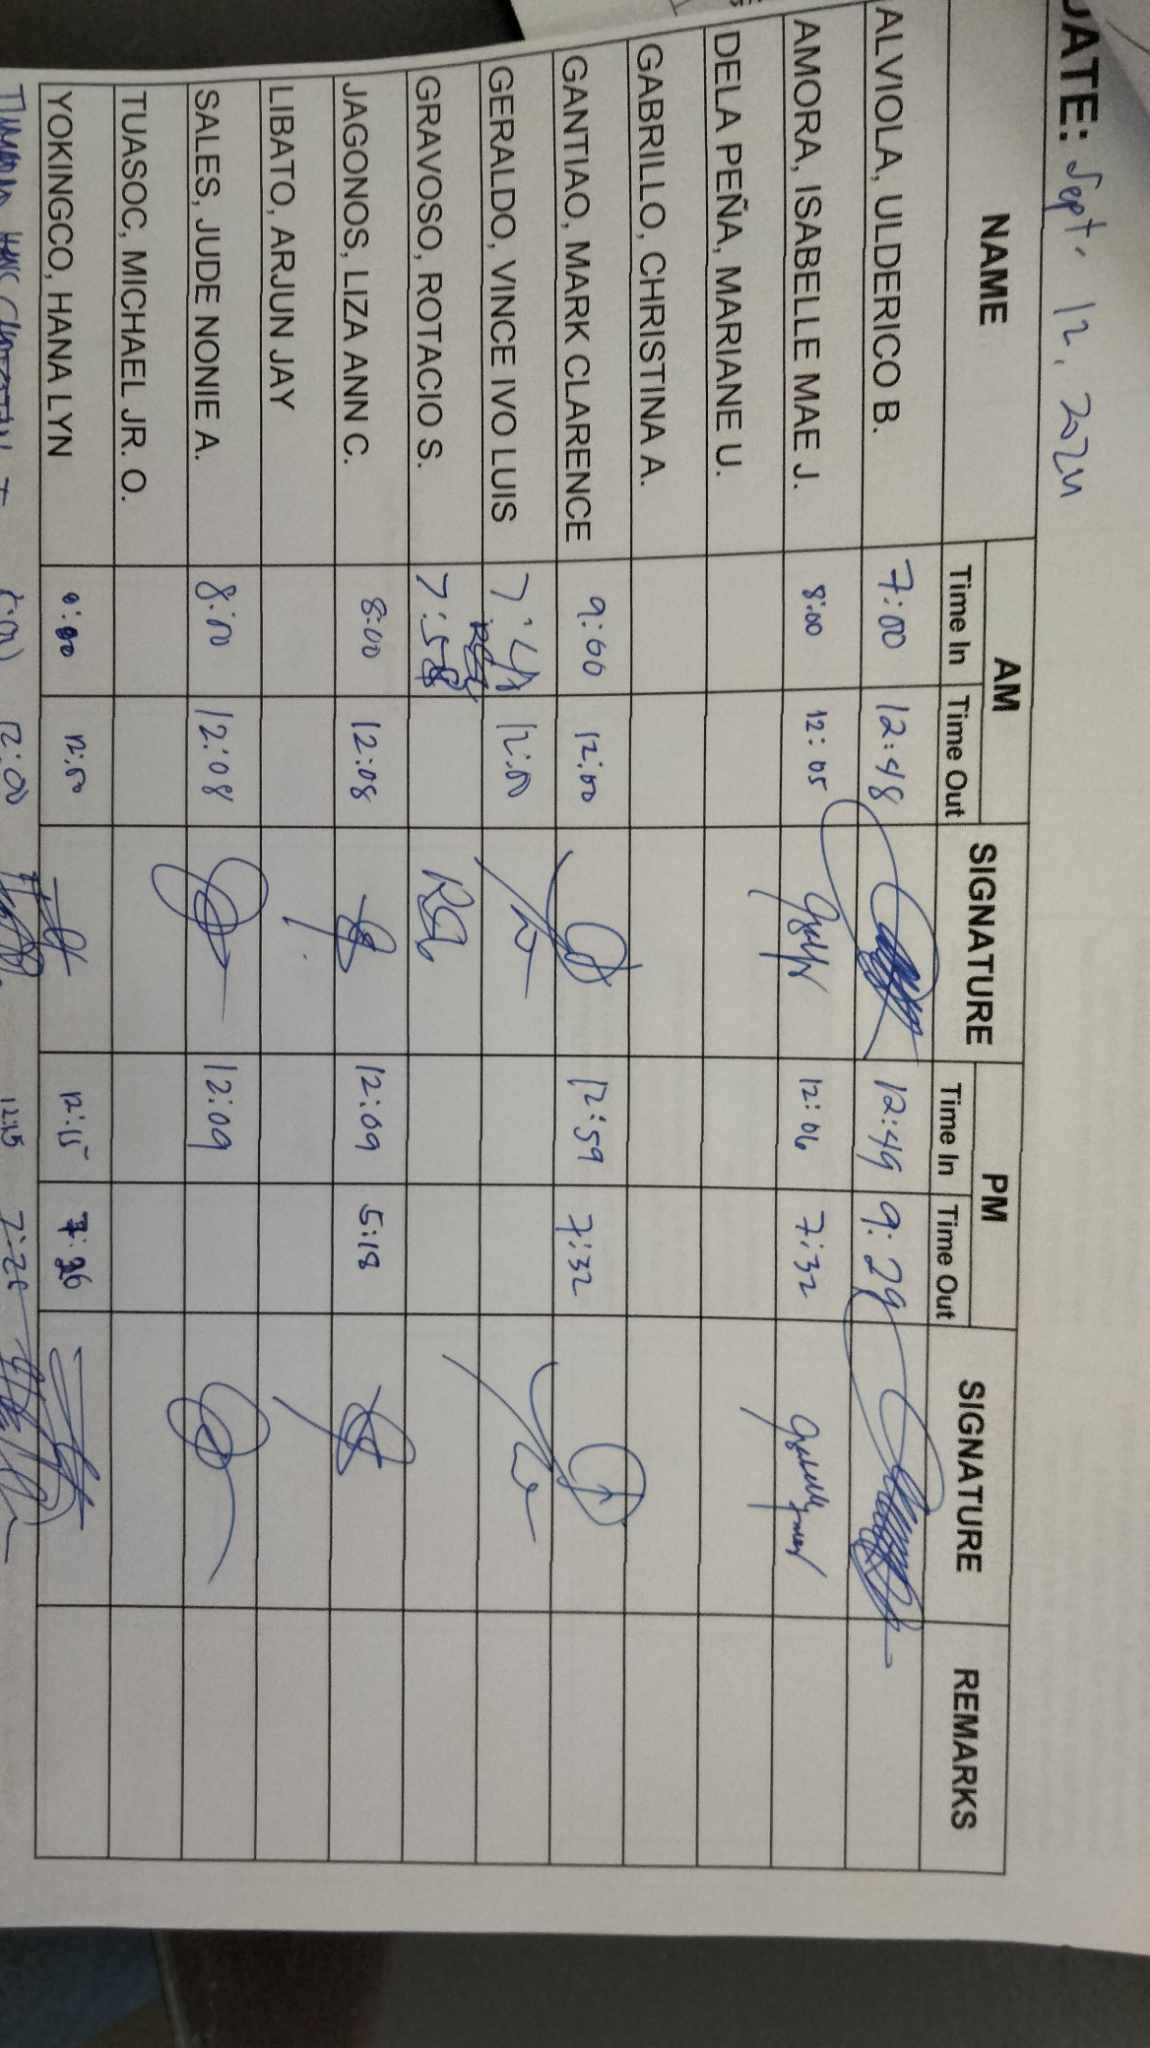 DATE: Sept. 12, 2024
NAME AM SIGNATURE PM SIGNATURE REMARKS
Time In Time Out Time In Time Out
ALVIOLA, ULDERICO B. 7:00 12:48 12:49 9:29
AMORA, ISABELLE MAE J. 8:00 12:05 12:06 7:32
DELA PEÑA, MARIANE U.
GABRILLO, CHRISTINA A.
GANTIAO, MARK CLARENCE 9:00 12:00 12:59 7:32
GERALDO, VINCE IVO LUIS 12:00
GRAVOSO, ROTACIO S. 7:58
JAGONOS, LIZA ANN C. 8:00 12:08 12:09 5:18
LIBATO, ARJUN JAY
SALES, JUDE NONIE A. 8:00 12:08 12:09
TUASOC, MICHAEL JR. O.
YOKINGCO, HANA LYN 12:00 12:15 7:26
12:00 12:15